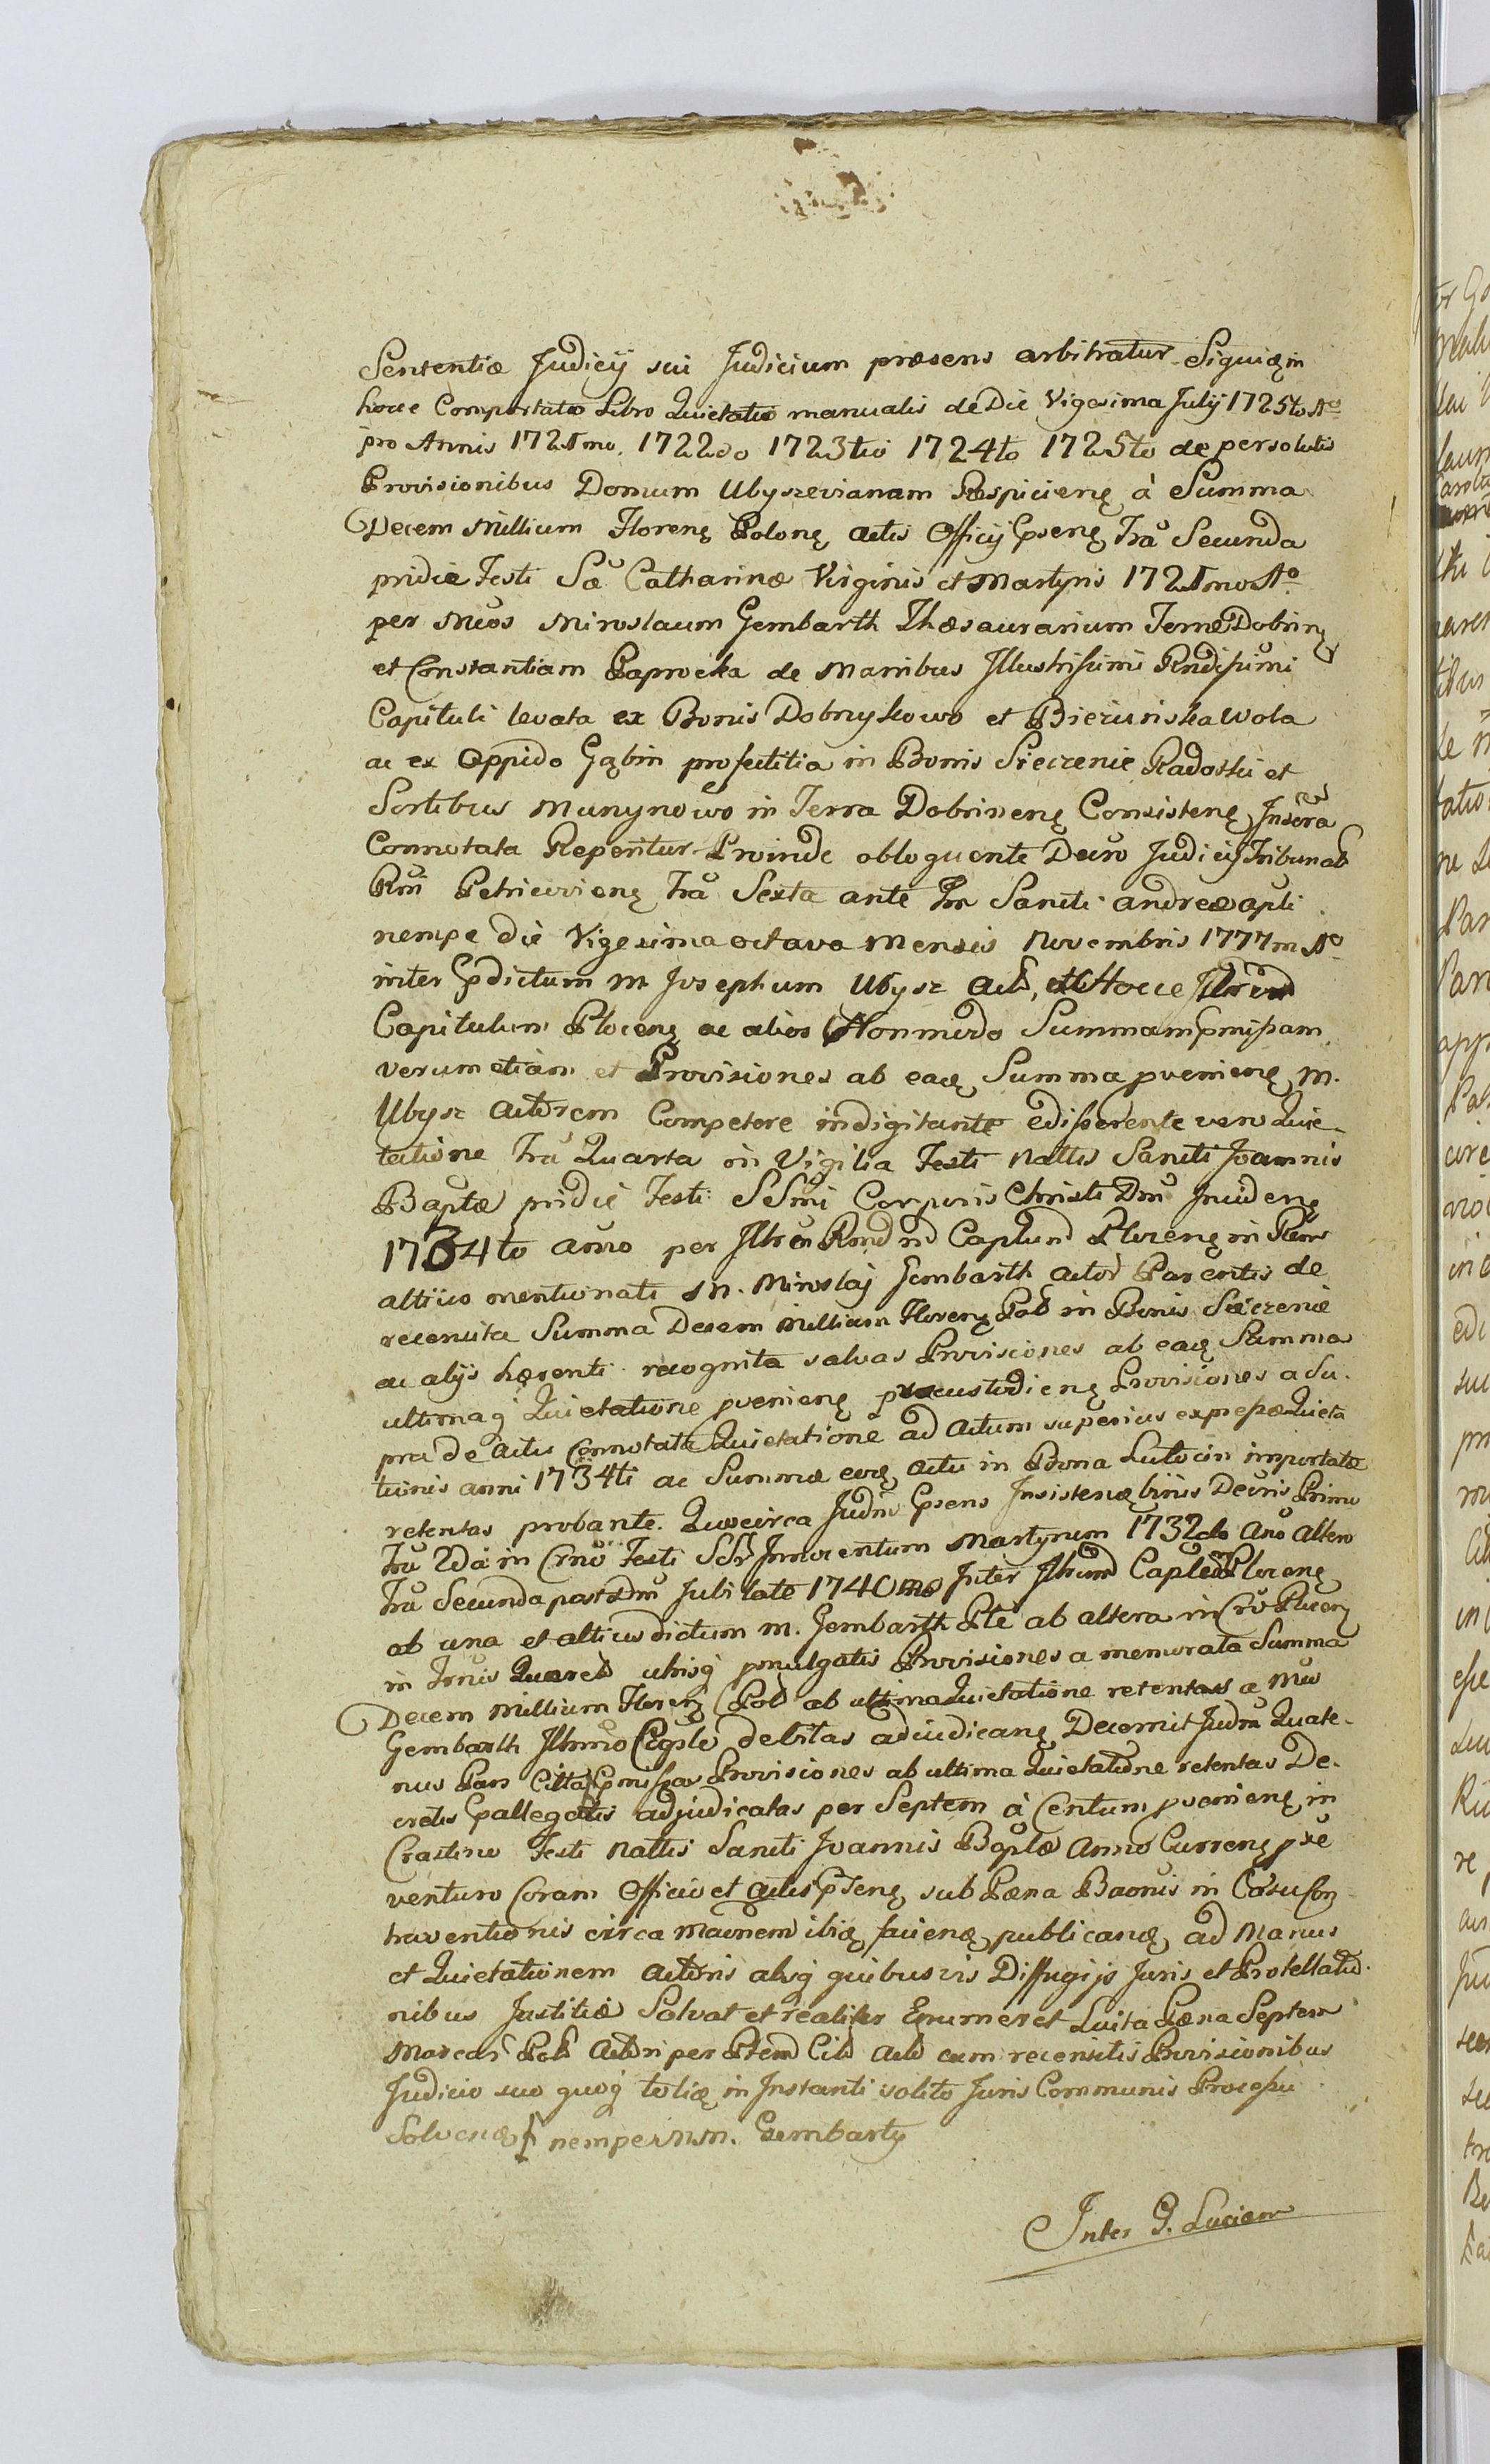 Sententiæ Judicij sui Judicium præsens arbitratur. Siquidem in
hocce Comportato Libro Quietatio manualis de Die Vigesima Julij 1725to Aº
pro Annis 1721mo. 1722do 1723tio 1724to 1725to de persolutis
Provisionibus Domum Ubyszevianam Respicienę à Summa
Decem Millium Florenę Polonę actis Officij Ꝓsenę Fra Secunda
pridie Festi Sæ Catharinæ Virginis et Martyris 1721mo Aº
per Mcos Miroslaum Gembarth Thæsaurarium Terræ Dobrinę
et Constantiam Paprocka de Manibus Illustrissimi Rndissimi
Capituli levata ex Bonis Dobrzykowo et Bieruniska Wola
ac ex Oppido Gąbin profectitia in Bonis Sieczenie Radoszki et
Sortibus Munynowo in Terra Dobrinenę Consistenę Inscra
Connotata Reperitur Proinde obloquente Decro Judicij Tribunal
Rni Petricovienę Fra Sexta ante Im Sancti Andreæ Apli
nempe die Vigesima octava Mensis Novembris 1777m Aº
inter Ꝓdictum M Josephum Ubysz Act, et Hocce
Capitulum Plocenę ac alios Nonmodo Summam Ꝓmissam
verum etiam et Provisiones ab eadę Summa ꝓvenienę M.
Ubysz Actorem Competere indigitante edisserente vero Quie-
tatione Fra Quarta in Vigilia Festi Nattis Sancti Joannis
Baptæ pridie Festi SSmi Corporis Christi Dni Incidenę
1734to anno per Illre Rnd Caplum Plocenę in Rem
altius mentionati M. Miroslaj Gembarth Actor Parentis de
recensita Summa Decem Millium Florenę Pol in Bonis Sieczenie
ac alijs hærenti recognita salvas Provisiones ab eadę Summa
ultimaq Quietatione ꝓvenienę præcustodienę Provisiones a Su-
pra de actis Connotata Quietatione ad Actum superius expressæ Quieta
tionis anni 1734ti ac Summæ ejusdę actu in Bona Lutocin importatæ
retentas probante. Quocirca Judm Ꝓsens Insistendę binis Decris Primo
Fra 2da in Crno Festi SS Innocentum Martyrum 1732do Ano altero
Fra Secunda post Dm Jubilate 1740mo Inter Illrmum Caplum Plocenę
ab una et altius dictum M. Gembarth Pte ab altera in Cro Plocenę
in Fruis Querel utrisq ꝓmulgatis Provisiones a memorata Summa
Decem Millium Florenę Pol ab ultima Quietatione retentas a Mco
Gembarth Illrmo Caplo debitas adjudicanę Decernit Judm Quate-
nus Pars Citta Ꝓmissas Provisiones ab ultima Quietatione retentas De-
cretis Ꝓallegatis adjudicatas per Septem à Centum ꝓvenienę in
Crastino Festi Nattis Sancti Joannis Baptæ Anno Currenę ꝓxe
venturo Coram Officio et Actis Ꝓsenę sub Pæna Baonis in Casu Con-
traventionis circa Maonem ibidę faciendę publicandę ad Manus
et Quietationem Actoris absq quibusvis Diffugijs Juris et Protellatio-
nibus Justitiæ Solvat et realiter Enumeret Luita Pæna Septem
Marcar Pol Actori per Ptem Cit Act cum recensitis Provisionibus
Judicio suo quoq totidę in Instanti solito Juris Communis Processu
Solvendę nempe MM. Gembarty
Inter G. Luciem